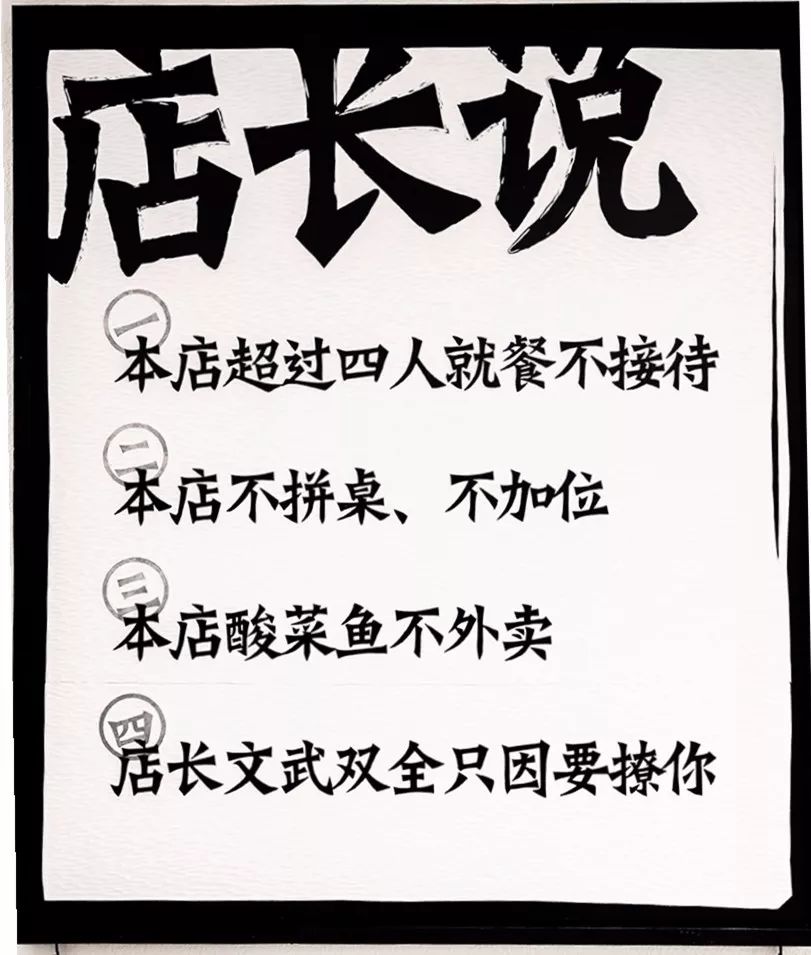 店长说
一
本店超过四人就餐不接待
二
本店不拼桌、不加位
三
本店酸菜鱼不外卖
四
店长文武双全只因要撩你